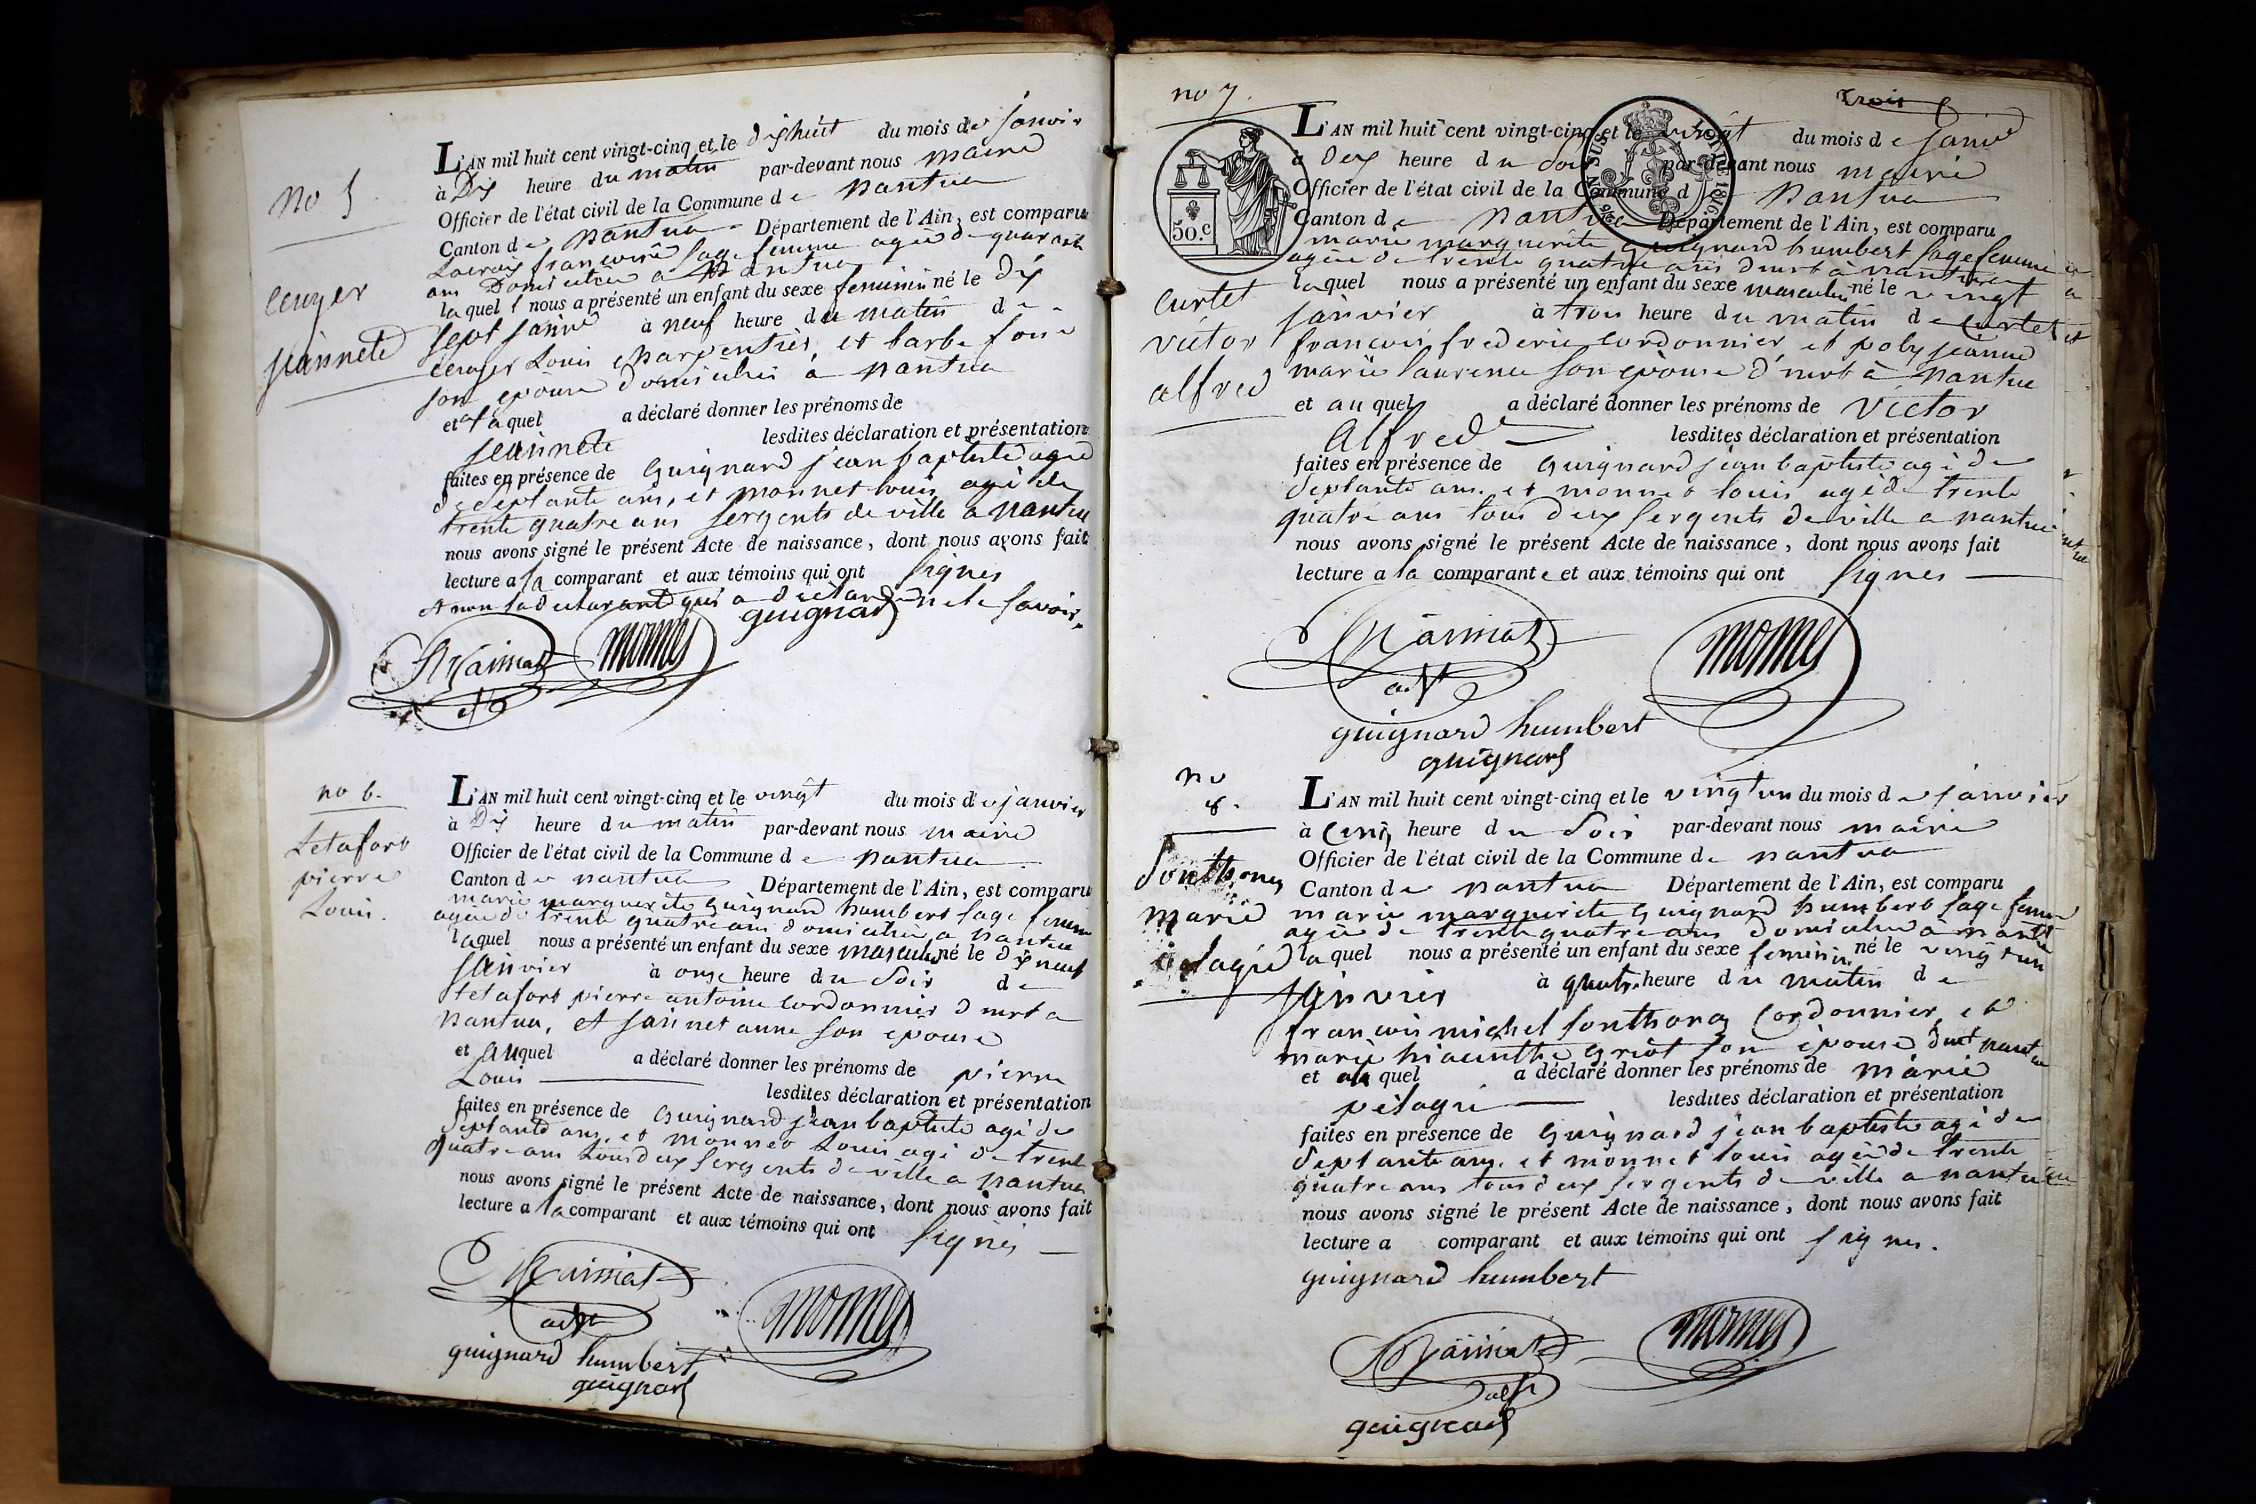 no 5
L'AN mil huit cent vingt-cinq et le dixhuit du mois de janvier
à Dix heure du matin par-devant nous maire
Officier de l'état civil de la Commune de nantua
Canton de nantua Département de l'Ain, est comparu
françoise sage femme agée de quarante
ans Domiciliée a Nantua
laquel nous a présenté un enfant du sexe feminin né le dix
sept janvr à neuf heure du matin de
Louis charpentier et barbe
son epouse domiciliés à nantua
et a laquel a déclaré donner les prénoms de
jeannete lesdites déclaration et présentation
faites en présence de guignard jean baptiste agé
de septante ans, et monnet louis agé de
trente quatre ans sergents de ville a nantua
nous avons signé le présent Acte de naissance, dont nous avons fait
lecture a la comparant et aux témoins qui ont signes
et non la declarante qui a declaré ne le savoir.
guignard
monnet
jeannete
no 6.
Letafort
pierre
Louis.
L'AN mil huit cent vingt-cinq et le vingt du mois de janvier
à Dix heure du matin par-devant nous maire
Officier de l'état civil de la Commune de nantua
Canton de nantua Département de l'Ain, est comparu
marie marguerite guignard humbert sage femme
agée de trente quatre ans domiciliée a nantua
laquel nous a présenté un enfant du sexe masculin né le dixneuf
janvier à onze heure du soir de
letafort pierre antoine cordonnier dmrt a
nantua, et jainnet anne son epouse
et auquel a déclaré donner les prénoms de pierre
Louis lesdites déclaration et présentation
faites en présence de guignard jean baptiste agé de
septante ans, et monnet Louis agé de trente
quatre ans tous deux sergents de ville a nantua
nous avons signé le présent Acte de naissance, dont nous avons fait
lecture a la comparant et aux témoins qui ont signés
monnet
guignard humbert
guignard
no 7.
trois
50.c
1816
L'AN mil huit cent vingt-cinq et le vingt du mois de janvr
à Deux heure du soir par-devant nous maire
Officier de l'état civil de la Commune d nantua
Canton de nantua Département de l'Ain, est comparu
marie marguerite guignard humbert sage femme
agée de trente quatre ans dmrt à nantua
laquel nous a présenté un enfant du sexe masculin né le vingt
janvier à trois heure du matin de Curtet
françois frederic cordonnier, et poly jeanne
marie laurence son epouse dmrt à nantua
et auquel a déclaré donner les prénoms de Victor
Alfred lesdites déclaration et présentation
faites en présence de guignard jean baptiste agé de
septante ans. et monnet louis agé de trente
quatre ans tous deux sergents de ville a nantua
nous avons signé le présent Acte de naissance, dont nous avons fait
lecture a la comparante et aux témoins qui ont signes
monnet
guignard humbert
guignard
curtet
victor
alfred
no
8.
marie
pelagie
L'AN mil huit cent vingt-cinq et le vingt un du mois de janvier
à Cinq heure du soir par-devant nous maire
Officier de l'état civil de la Commune de nantua
Canton de nantua Département de l'Ain, est comparu
marie marguerite guignard humbert sage femme
agée de trente quatre ans domiciliée à nantua
laquel nous a présenté un enfant du sexe feminin né le vingt un
janvier à quatre heure du matin de
françois michel sonthonax Cordonnier, et
marie hiacinthe griot son épouse dmt nantua
et a la quel a déclaré donner les prénoms de marie
pelagie lesdites déclaration et présentation
faites en présence de guignard jean baptiste agé de
septante ans. et monnet louis agé de trente
quatre ans tous deux sergents de ville a nantua
nous avons signé le présent Acte de naissance, dont nous avons fait
lecture a comparant et aux témoins qui ont signes.
guignard humbert
monnet
guignard